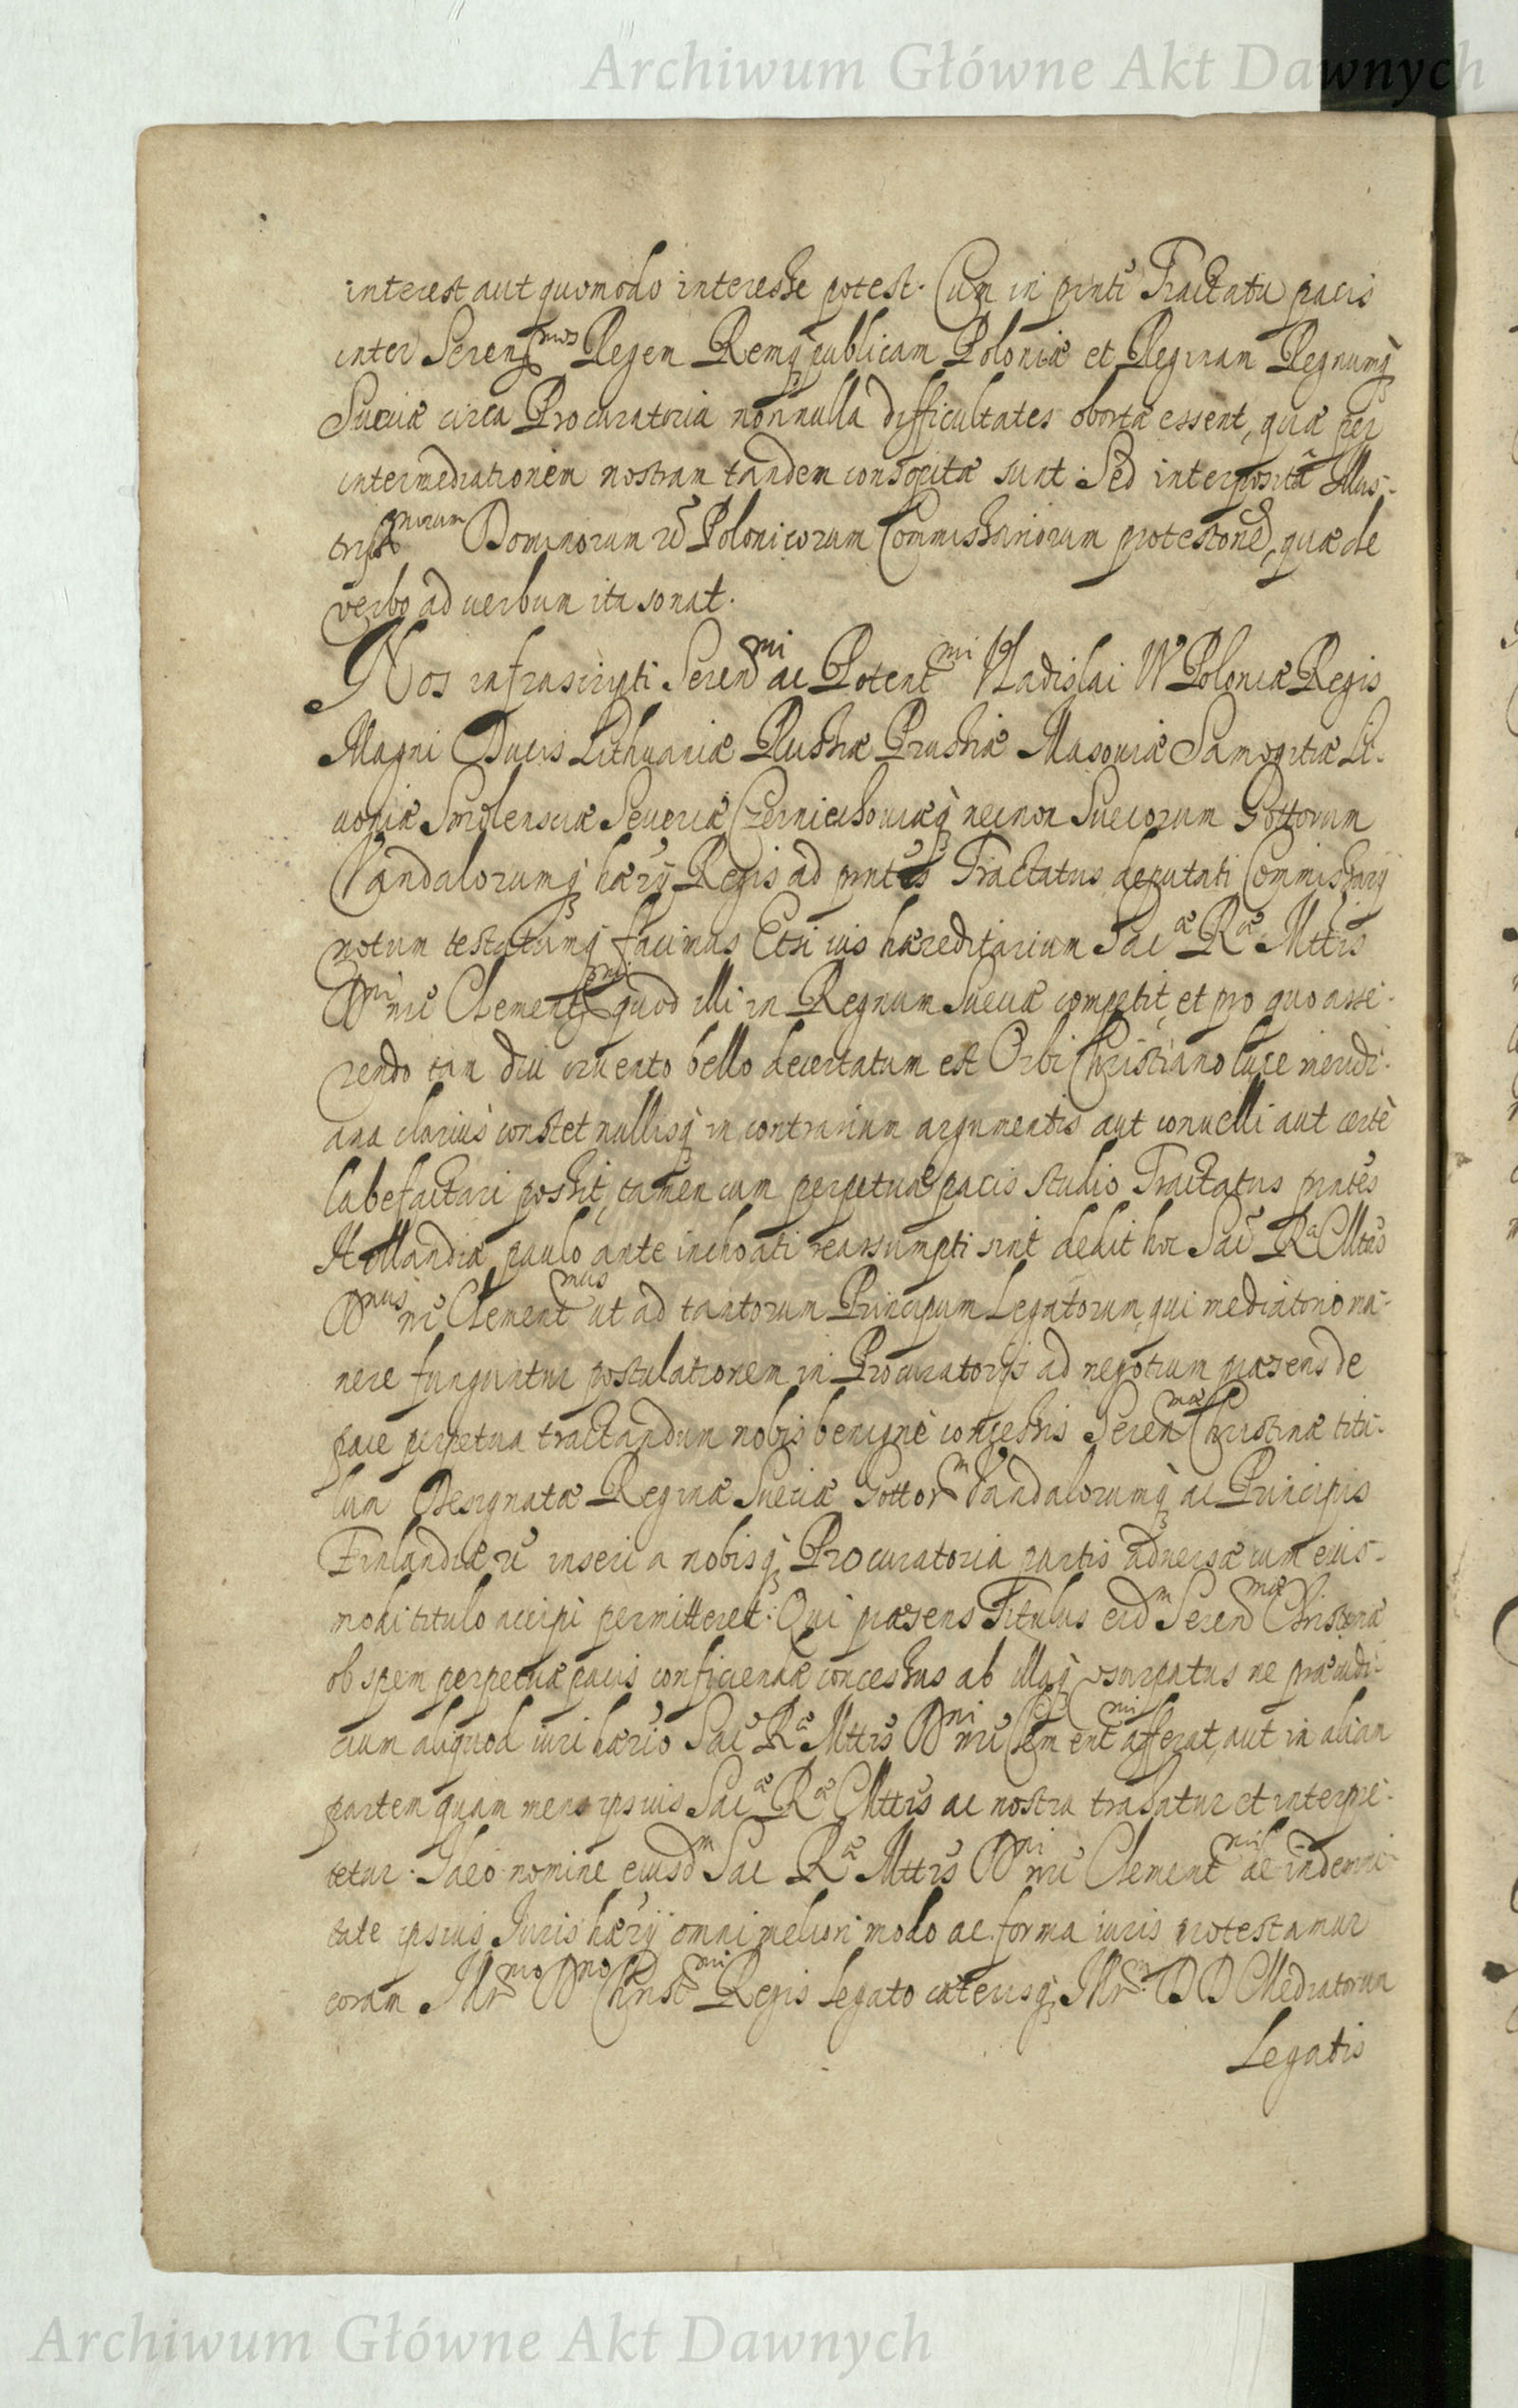 Archiwum Główne Akt Dawnych
interest aut quomodo interesse potest. Cum in pnti Tractatu pacis
inter Sereniss^mos Regem Remq̀ publicam Poloniæ et Reginam Regnumq̀
Sueciæ circa Procuratoria nonnulla difficultates obortæ essent, quæ per
intermediationem nostram tandem consopitæ sunt. Sed interposita Illus-
triss^morum Dominorum Polonicorum Commissariorum protestone, quæ de
verbo ad uerbum ita sonat.
Nos infrascripti Seren^mi ac Potent^mi Vladislai IV Poloniæ Regis
Magni Ducis Lithuaniæ Russiæ Prussiæ Masouiæ Samogitiæ Li-
uoniæ Smolensciæ Seueriæ Czerniechouiæq̀ necnon Suecorum Gottorum
Vandalorumq̀ hærij Regis ad pntes Tractatus deputati Commissarij
notum testatumq̀ facimus Etsi ius hæreditarium Sac^æ R^æ Mttis
D^ni nri Clement^mi quod illi in Regnum Sueciæ competit, et pro quo asse-
rendo tam diu cruento bello decertatum est Orbi Christiano luce meridi-
ana clarius constet nullisq̀ in contrarium argumentis aut conuelli aut certè
labefactari possit, tamen cum perpetuæ pacis studio Tractatus pntes
Hollandiæ paulo ante inchoati reassumpti sint dedit hoc Sac R^a Mtas
D^nus nr Clement^mus ut ad tantorum Principum Legatorum, qui mediatorio mu-
nere funguntur postulationem in Procuratorijs ad negotium præsens de
pace perpetua tractandum nobis benignè concessis Seren^mæ Christinæ titu-
lum Designatæ Reginæ Sueciæ Gottor^m Vandalorumq̀ ac Principis
Finlandiæ &c inseri a nobisq̀ Procuratoria partis aduersæ cum eius-
modi titulo accipi permitteret. Qui præsens Titulus eid^m Seren^mæ Christinæ
ob spem perpetuæ pacis conficiendæ concessus ab illaq̀ vsurpatus ne præiudi-
cium aliquod iuri hærio Sac R^æ Mttis D^ni nri Clement^mi afferat, aut in aliam
partem quam mens ipsius Sac^æ R^æ Mttis ac nostra trahatur et interpre-
tetur. Ideo nomine eiusd^m Sac R^æ Mttis D^ni nri Clement^mi ac indemni-
tate ipsius Iuris hærij omni meliori modo ac forma iuris protestamur
coram Illr^mo D^no Christ^mi Regis Legato cæterisq̀ Illr^m DD Mediatorum
Legatis
Archiwum Główne Akt Dawnych